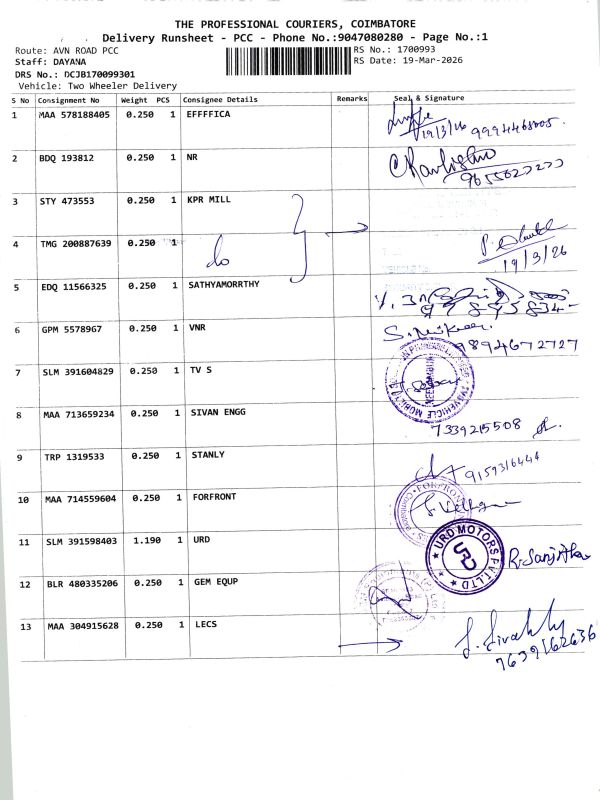 THE PROFESSIONAL COURIERS, COIMBATORE
Delivery Runsheet - PCC - Phone No.:9047080280 - Page No.:1
Route: AVN ROAD PCC
RS No.: 1700993
Staff: DAYANA
RS Date: 19-Mar-2026
DRS No.: DCJB170099301
Vehicle: Two Wheeler Delivery
S No Consignment No Weight PCS Consignee Details Remarks Seal & Signature
1 MAA 578188405 0.250 1 EFFFFICA
19/3/26
2 BDQ 193812 0.250 1 NR
3 STY 473553 0.250 1 KPR MILL
4 TMG 200887639 0.250 1 do
19/3/26
5 EDQ 11566325 0.250 1 SATHYAMORRTHY
6 GPM 5578967 0.250 1 VNR
9894672727
7 SLM 391604829 0.250 1 TV S
8 MAA 713659234 0.250 1 SIVAN ENGG
7339215508
9 TRP 1319533 0.250 1 STANLY
9159316444
10 MAA 714559604 0.250 1 FORFRONT
11 SLM 391598403 1.190 1 URD
URD MOTORS PVT LTD
12 BLR 480335206 0.250 1 GEM EQUP
13 MAA 304915628 0.250 1 LECS
7639162636